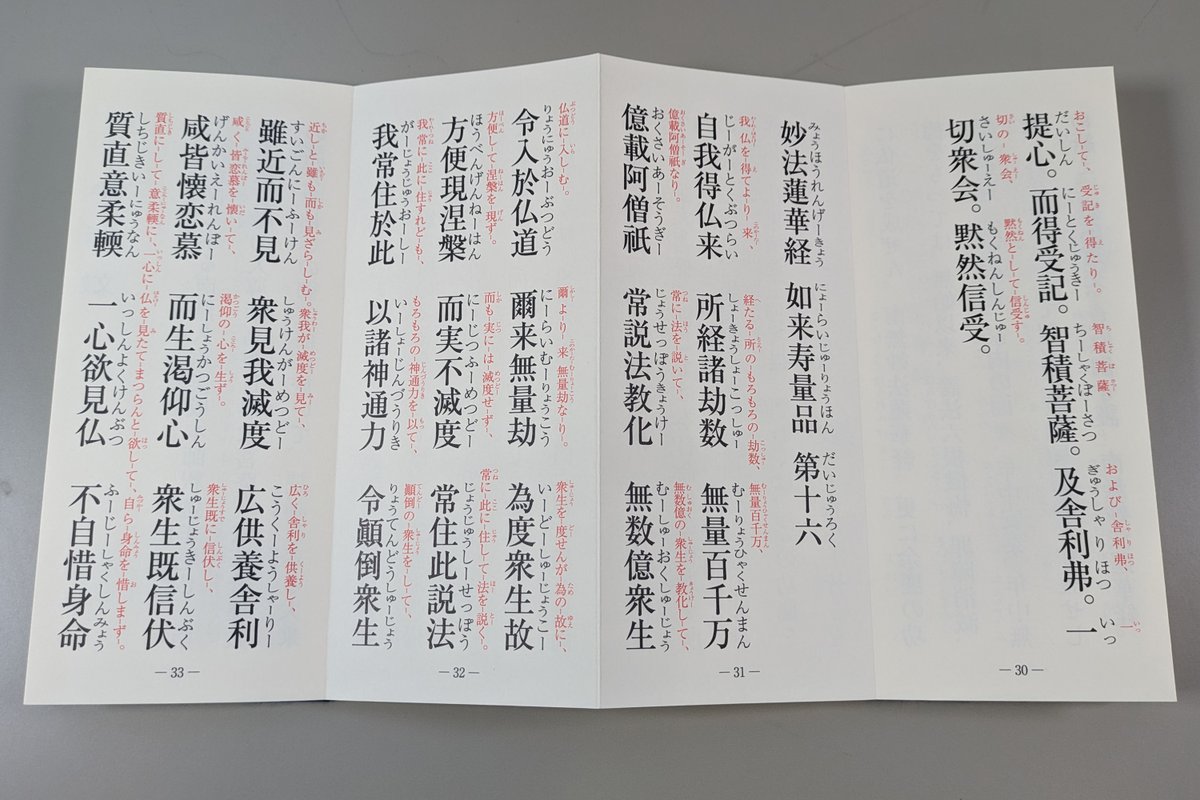 おこして、 受記を得たり。 智積菩薩、 および舎利弗、 一
だいしん にーとくじゅうきー ちーしゃくぼーさつ ぎゅうしゃりほつ いっ
提心。而得受記。智積菩薩。及舎利弗。一
切の衆会、 黙然として信受す。
さいしゅーえー もくねんしんじゅー
切衆会。黙然信受。
—30—
みょうほうれんげーきょう にょーらいじゅーりょうほん だいじゅうろく
妙法蓮華経 如来寿量品 第十六
我仏を得てより来、 経たる所のもろもろの劫数、 無量百千万、
じーがーとくぶつらい しょーきょうしょーこっしゅー むーりょうひゃくせんまん
自我得仏来 所経諸劫数 無量百千万
億載阿僧祇なり。 常に法を説いて、 無数億の衆生を教化して、
おくさいあーそうぎー じょうせっぽうきょうけー むーしゅーおくしゅーじょう
億載阿僧祇 常説法教化 無数億衆生
—31—
仏道に入しむ。 爾より来無量劫なり。 衆生を度せんが為の故に、
りょうにゅうおーぶつどう にーらいむーりょうこう いーどーしゅーじょうこー
令入於仏道 爾来無量劫 為度衆生故
方便して涅槃を現ず。 而も実には滅度せず、 常に此に住して法を説く。
ほうべんげんねーはん にーじつふーめつどー じょうじゅうしーせっぽう
方便現涅槃 而実不滅度 常住此説法
我常に此に住すれども、 もろもろの神通力を以て、 顚倒の衆生をして、
がーじょうじゅうおーしー いーしょーじんづうりき りょうてんどうしゅーじょう
我常住於此 以諸神通力 令顚倒衆生
—32—
近しと雖も而も見ざらしむ。 衆我が滅度を見て、 広く舎利を供養し、
すいごんにーふーけん しゅうけんがーめつどー こうくーようしゃーりー
雖近而不見 衆見我滅度 広供養舎利
咸く皆恋慕を懐いて、 渇仰の心を生ず。 衆生既に信伏し、
げんかいえーれんぼー にーしょうかつごうしん しゅーじょうきーしんぶく
咸皆懐恋慕 而生渇仰心 衆生既信伏
質直にして意柔輭に、 一心に仏を見たてまつらんと欲して、 自ら身命を惜しまず。
しちじきいーにゅうなん いっしんよくけんぶつ ふーじーしゃくしんみょう
質直意柔輭 一心欲見仏 不自惜身命
—33—